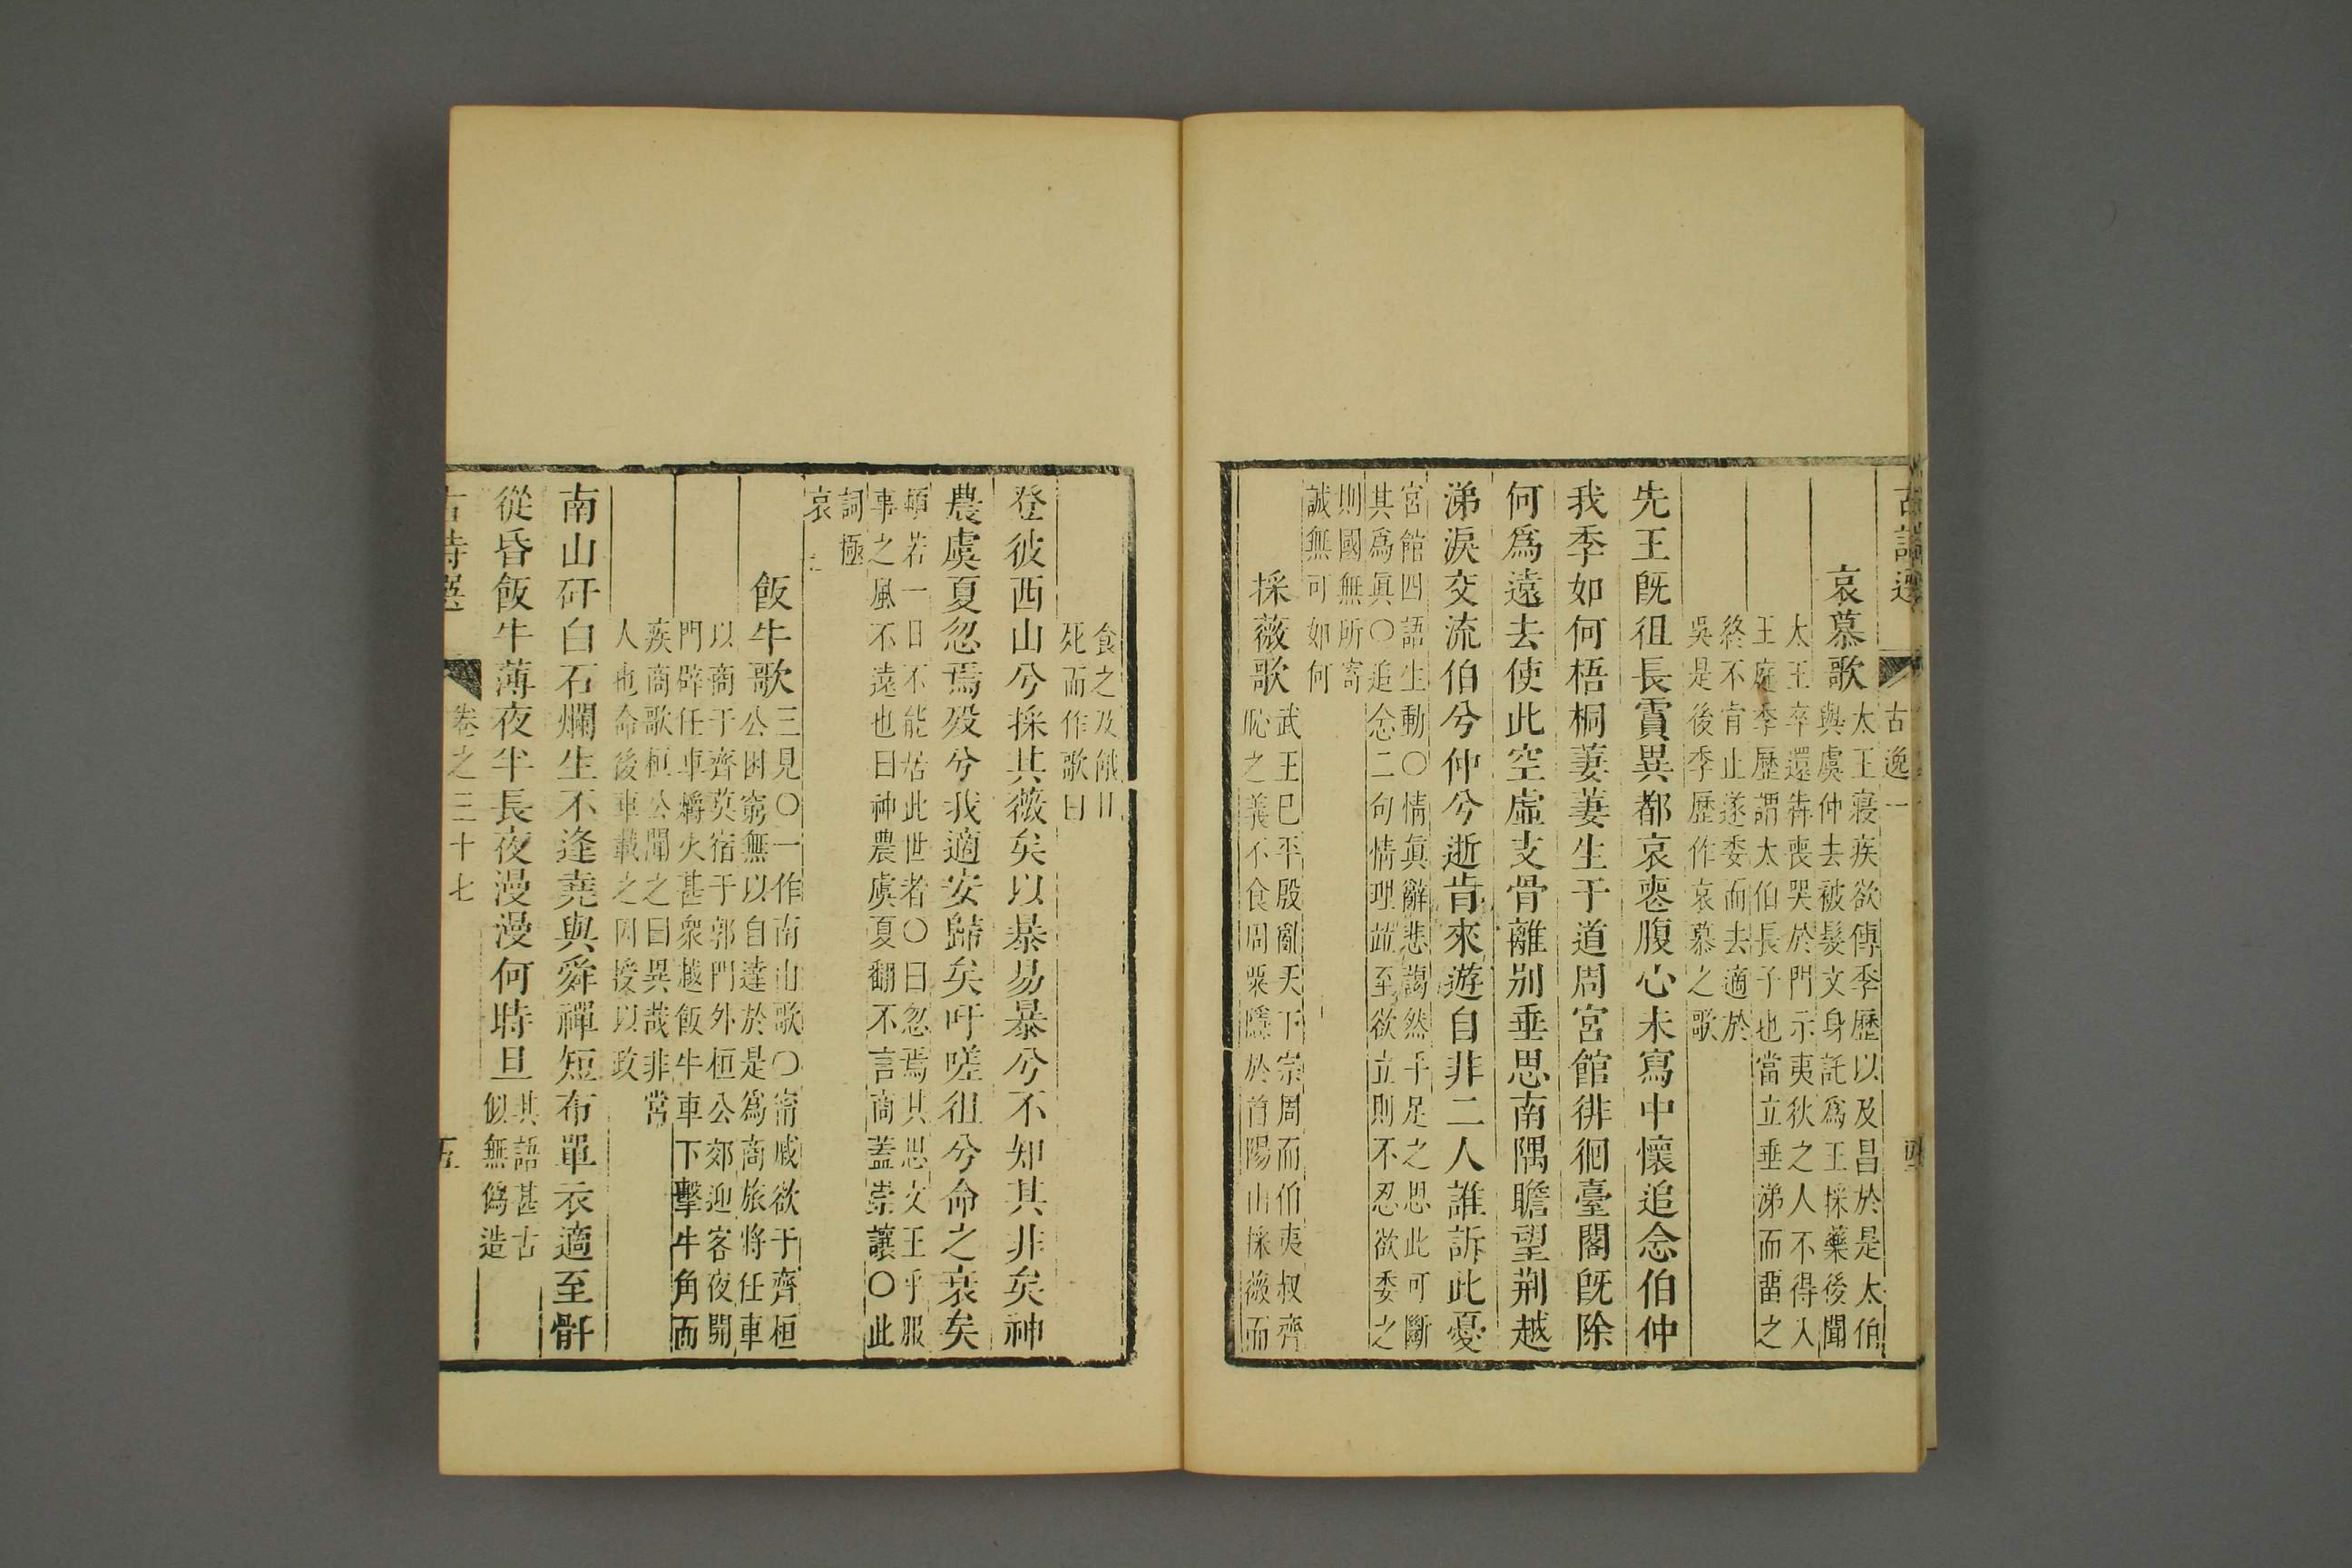 古詩選 古逸一 四
哀慕歌
太王寢疾欲傳季歷以及昌於是太伯
與虞仲去被髮文身託爲王採藥後聞
太王卒還犇喪哭於門示夷狄之人不得入
王庭季歷謂太伯長子也當立垂涕而畱之
終不肯止遂委而去適於
吳是後季歷作哀慕之歌
先王旣徂長霣異都哀喪腹心未寫中懷追念伯仲
我季如何梧桐萋萋生于道周宮館徘徊臺閣旣除
何爲遠去使此空虛支骨離別垂思南隅瞻望荆越
涕淚交流伯兮仲兮逝肯來遊自非二人誰訴此憂
宮館四語生動〇情眞辭悲藹然手足之思此可斷
其爲眞〇追念二句情理茈至欲立則不忍欲委之
則國無所寄
誠無可如何
採薇歌
武王已平殷亂天下宗周而伯夷叔齊
恥之義不食周粟隱於首陽山採薇而
食之及餓且
死而作歌曰
登彼西山兮採其薇矣以暴易暴兮不知其非矣神
農虞夏忽焉歿兮我適安歸矣吁嗟徂兮命之衰矣
頓若一日不能居此世者〇曰忽焉其思文王乎服
事之風不遠也曰神農虞夏翻不言商蓋崇讓〇此
詞極
哀
飯牛歌
三見〇一作南山歌〇甯戚欲干齊桓
公困窮無以自達於是爲商旅將任車
以商于齊莫宿于郭門外桓公郊迎客夜開
門辟任車爝火甚衆越飯牛車下擊牛角而
疾商歌桓公聞之曰異哉非常
人也命後車載之因授以政
南山矸白石爛生不逢堯與舜禪短布單衣適至骭
從昏飯牛薄夜半長夜漫漫何時旦
其語甚古
似無僞造
古詩選 卷之三十七 五